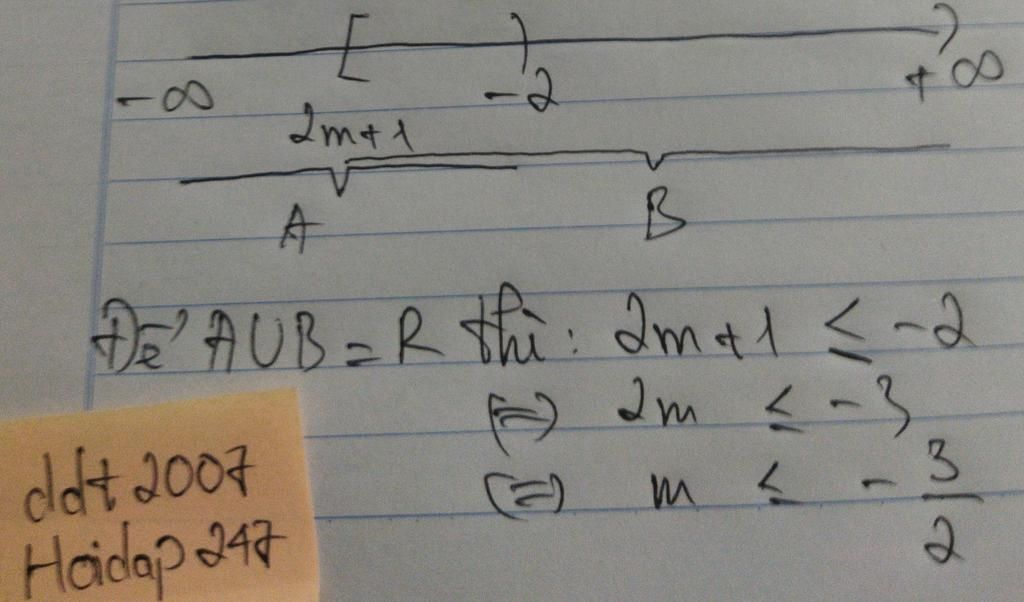 [ )
-∞ 2m+1 -2 +∞
A B
Để A∪B = R thì: 2m+1 ≤ -2
(=) 2m ≤ -3
(=) m ≤ -3/2
ddt 2007
Hoidap 247